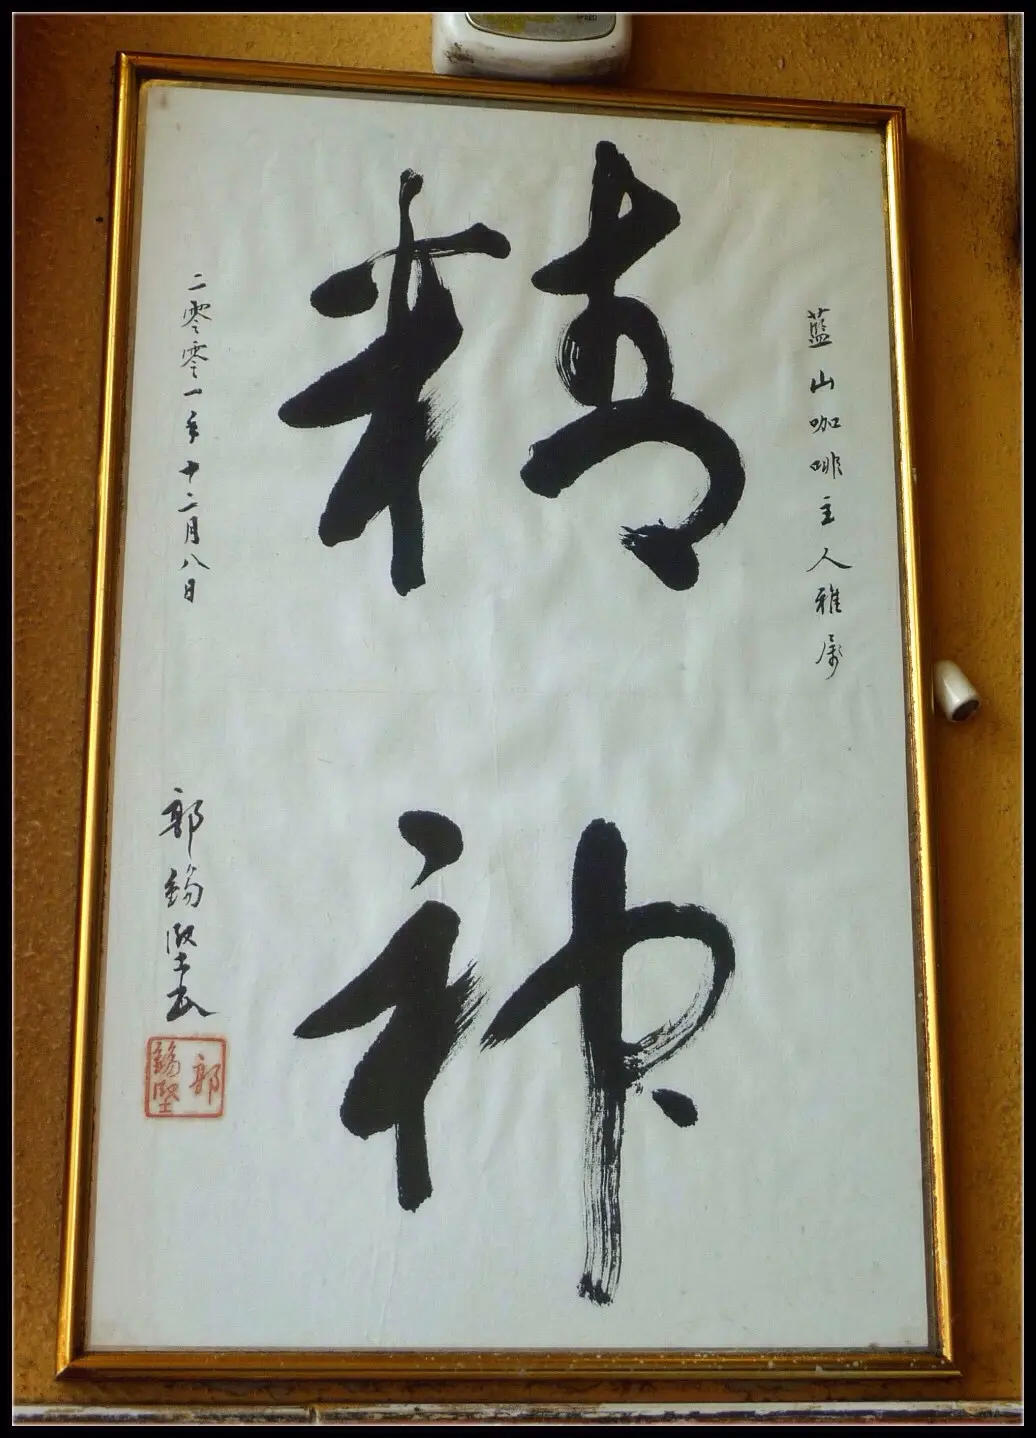 藍山咖啡主人雅屬
精神
二零零一年十二月八日
郭錫堅
郭錫堅